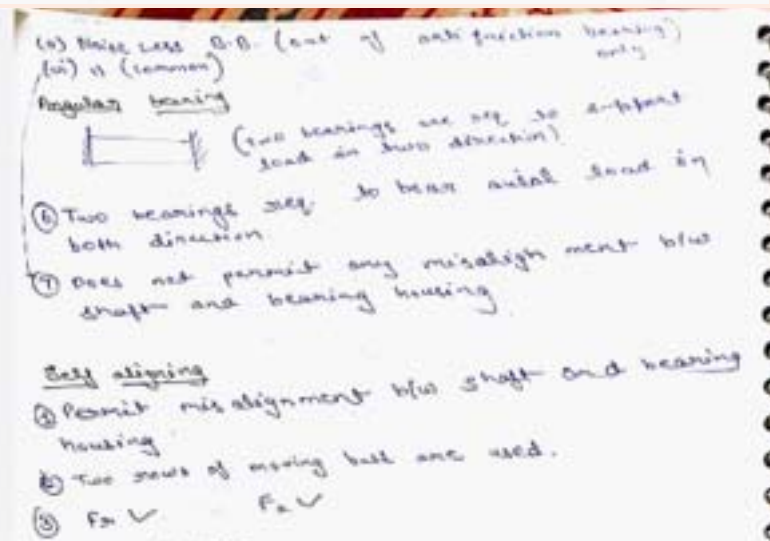 (v) Noise Less B.B. (out of anti friction bearing)
only
(vi) is (common)
Angular bearing
(two bearings are req to support
load in two direction)
⑥ Two bearings req. to bear axial load in
both direction
⑦ Does not permit any misalignment b/w
shaft and bearing housing
Self aligning
① Permit misalignment b/w shaft and bearing
housing
② Two rows of moving ball are used.
③ Fr ✓ Fa ✓